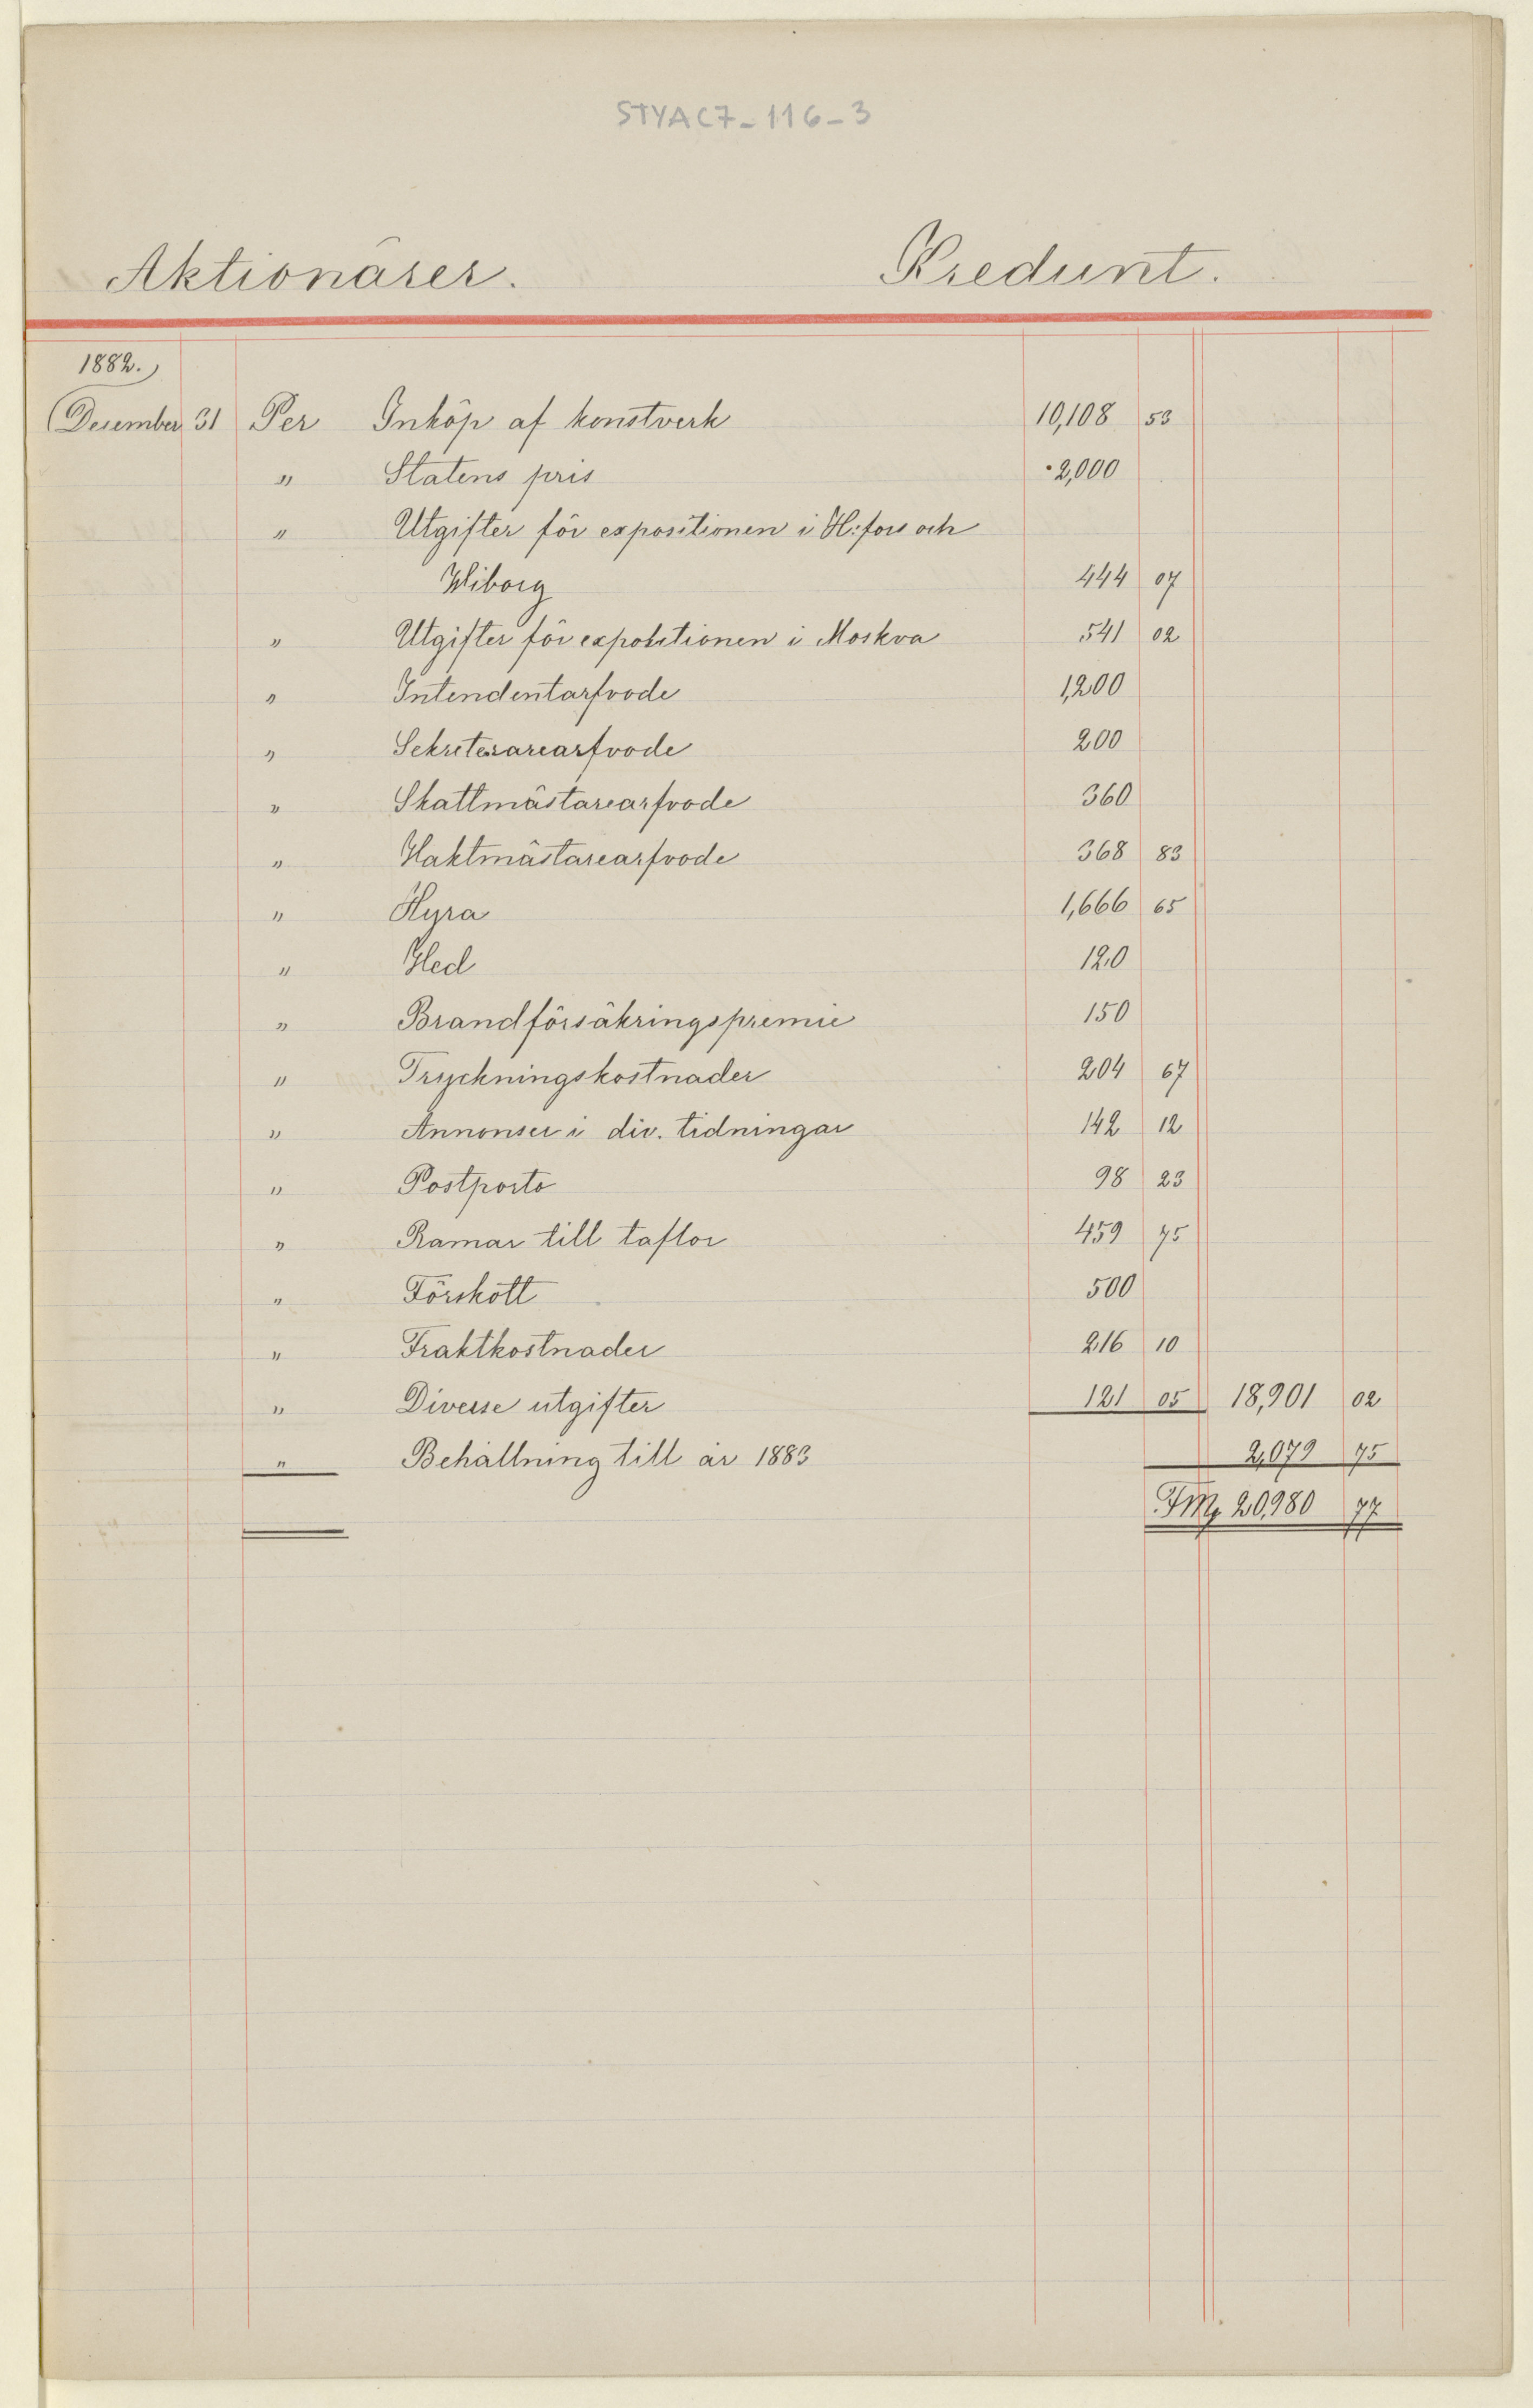 STYAC7-116-3
Aktionärer. Kredunt.
1882.
December 31 Per Inköp af konstverk 10,108 53
" Statens pris 2,000
" Utgifter för expositionen i H:fors och
Wiborg 444 07
" Utgifter för expositionen i Moskva 541 02
" Intendentarfvode 1,200
" Sekreterarearfvode 200
" Skattmästarearfvode 360
" Vaktmästarearfvode 368 83
" Hyra 1,666 65
" Ved 120
" Brandförsäkringspremie 150
" Tryckningskostnader 204 67
" Annonser i div. tidningar 142 12
" Postporto 98 23
" Ramar till taflor 459 75
" Förskott 500
" Fraktkostnader 216 10
" Diverse utgifter 121 05 18,901 02
" Behållning till år 1883 2,079 75
Fmg 20,980 77